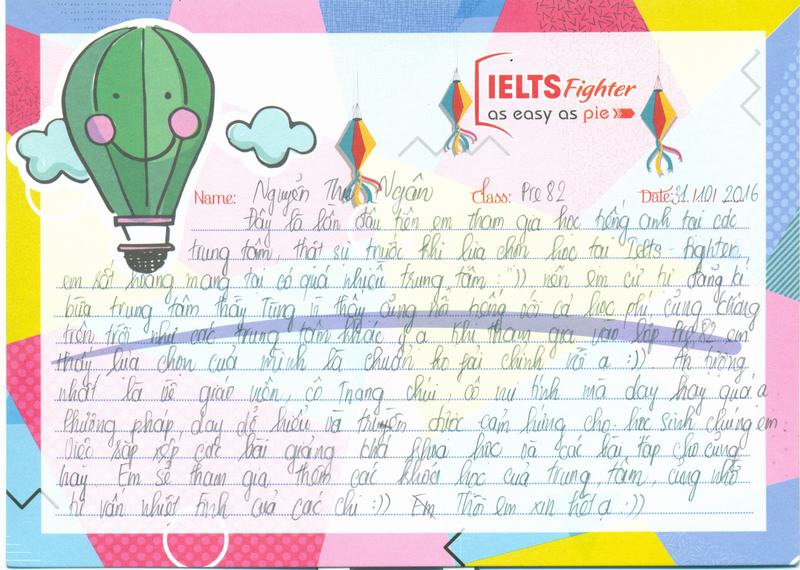 IELTS Fighter
as easy as pie
Name: Nguyễn Thu Ngân Class: Pre 82 Date: 31/10/2016
Đây là lần đầu tiên em tham gia học tiếng anh tại các
trung tâm, thật sự trước khi lựa chọn học tại Ielts - Fighter
em rất hoang mang tại có quá nhiều trung tâm :")) nên em cứ đăng kí
bừa trung tâm thầy Tùng vì thầy cũng nổi tiếng với cả học phí cũng chẳng
trên trời như các trung tâm khác ý ạ. Khi tham gia vào lớp Pre 82 em
thấy lựa chọn của mình là chuẩn ko phải chỉnh rồi ạ :)). Ấn tượng
nhất là về giáo viên, cô Trang chúi, cô vui tính mà dạy hay quá ạ
Phương pháp dạy dễ hiểu và truyền được cảm hứng cho học sinh chúng em
Việc sắp xếp các bài giảng khá khoa học và các bài tập cho cũng
hay Em sẽ tham gia thêm các khóa học của trung tâm, cũng nhờ
tư vấn nhiệt tình của các chị :)) Em Thôi em xin hết ạ :))